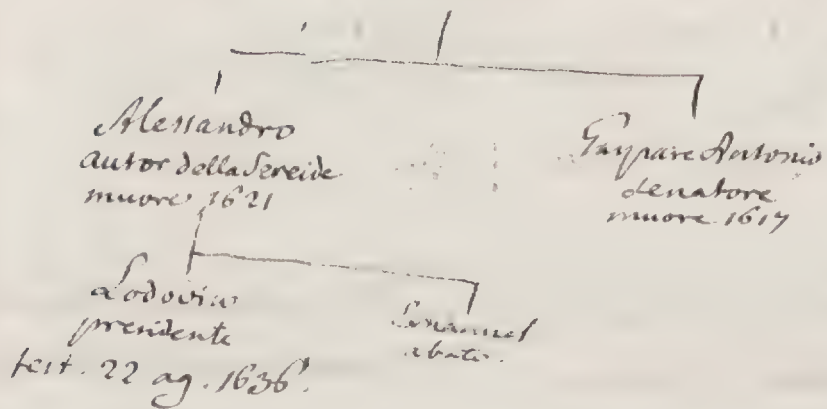 Alessandro
autor della Sereide
muore 1621
Gaspare Antonio
senatore
muore 1617
Lodovico
presidente
test. 22 ag. 1636.
Emanuel
abate.